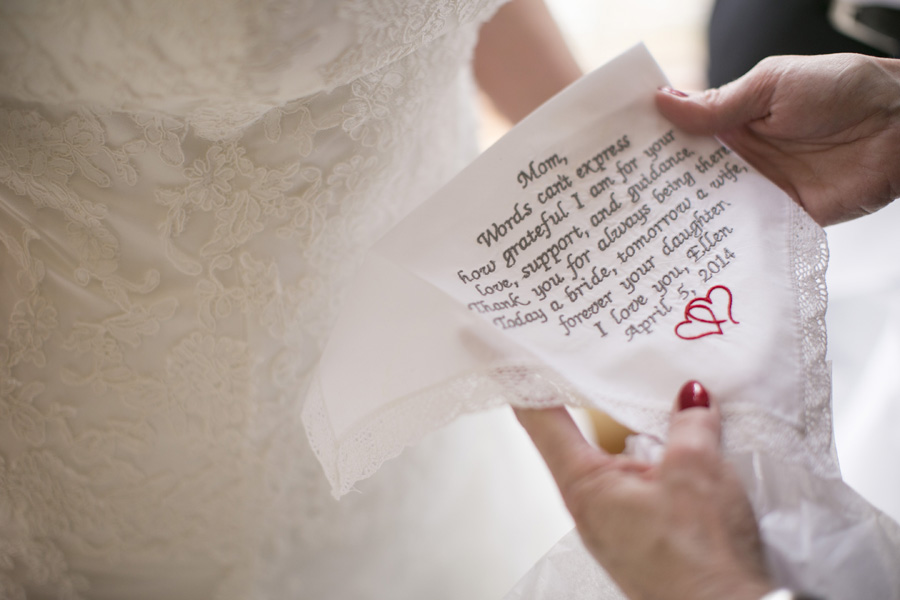 Mom,
Words can't express
how grateful I am for your
love, support, and guidance.
Thank you for always being there
Today a bride, tomorrow a wife,
forever your daughter.
I love you, Ellen
April 5, 2014